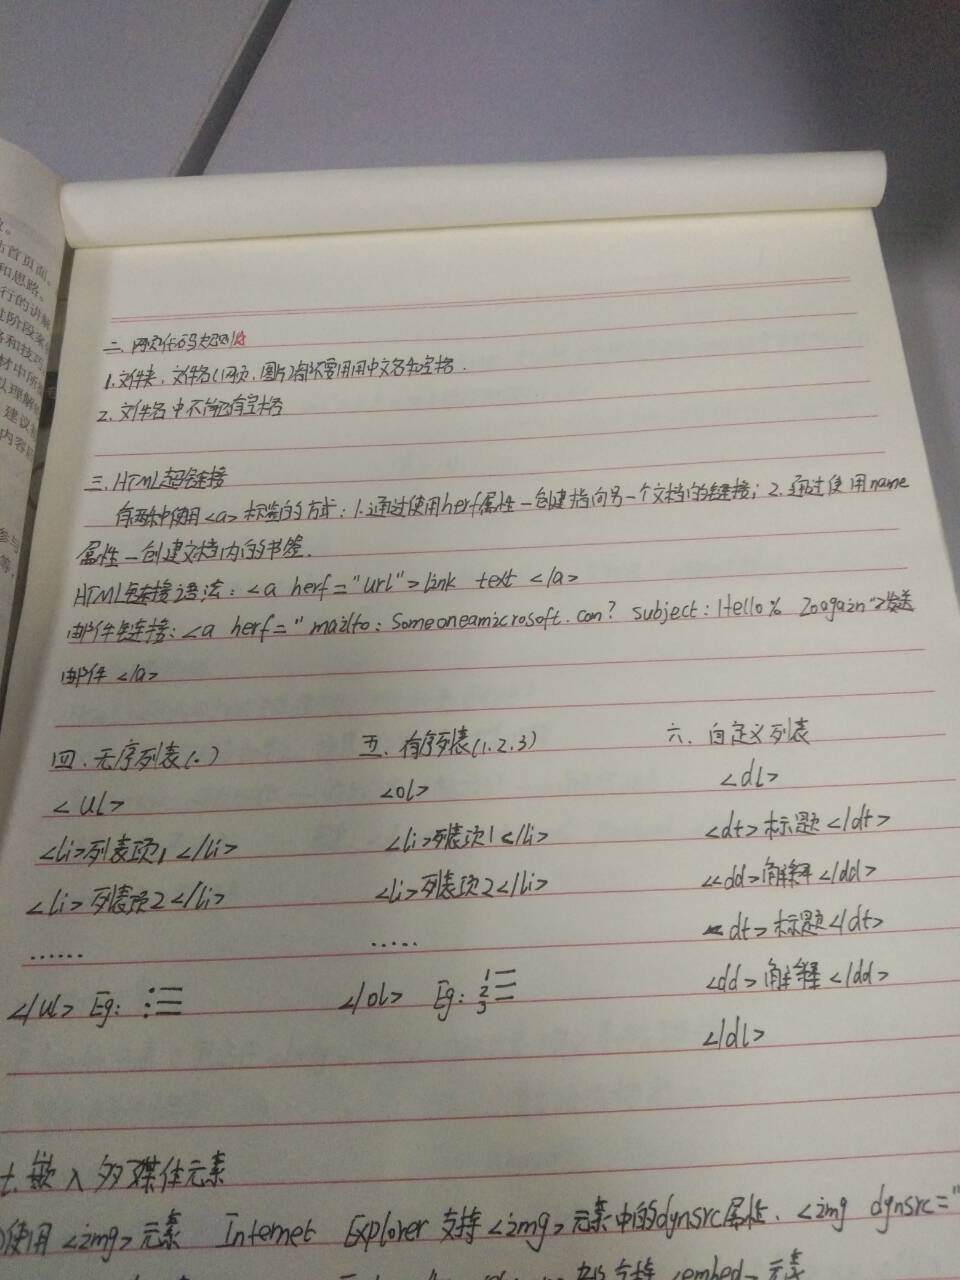 站首页面。
和思路。
行的讲解
二、网页代码规则
1.文件夹、文件名(网页、图片)都不要用用中文名和空格.
2.文件名中不能有空格
三、HTML超链接
有两种使用<a>标签的方式：1.通过使用herf属性—创建指向另一个文档的链接；2.通过使用name
属性—创建文档内的书签.
HTML链接语法：<a herf="url">link text </a>
邮件链接：<a herf="mailto:Someoneamicrosoft.com?subject:Hello% 20again">发送
邮件</a>
四、无序列表(·)
<ul>
<li>列表项1</li>
<li>列表项2</li>
......
</ul> Eg:
五、有序列表(1.2.3)
<ol>
<li>列表项1</li>
<li>列表项2</li>
.....
</ol> Eg: 1 2 3
六、自定义列表
<dl>
<dt>标题</dt>
<dd>解释</dd>
<dt>标题</dt>
<dd>解释</dd>
</dl>
七.嵌入多媒体元素
使用<img>元素 Internet Explorer 支持<img>元素中的dynsrc属性.<img dynsrc="
都支持<embed>元素